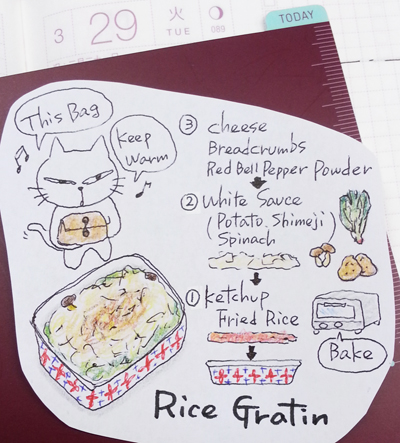 TODAY
3
29
火
TUE
089
This Bag
Keep
Warm
③ cheese
Breadcrumbs
Red Bell Pepper Powder
② White Sauce
(Potato, Shimeji
Spinach
① Ketchup
Fried Rice
Bake
Rice Gratin